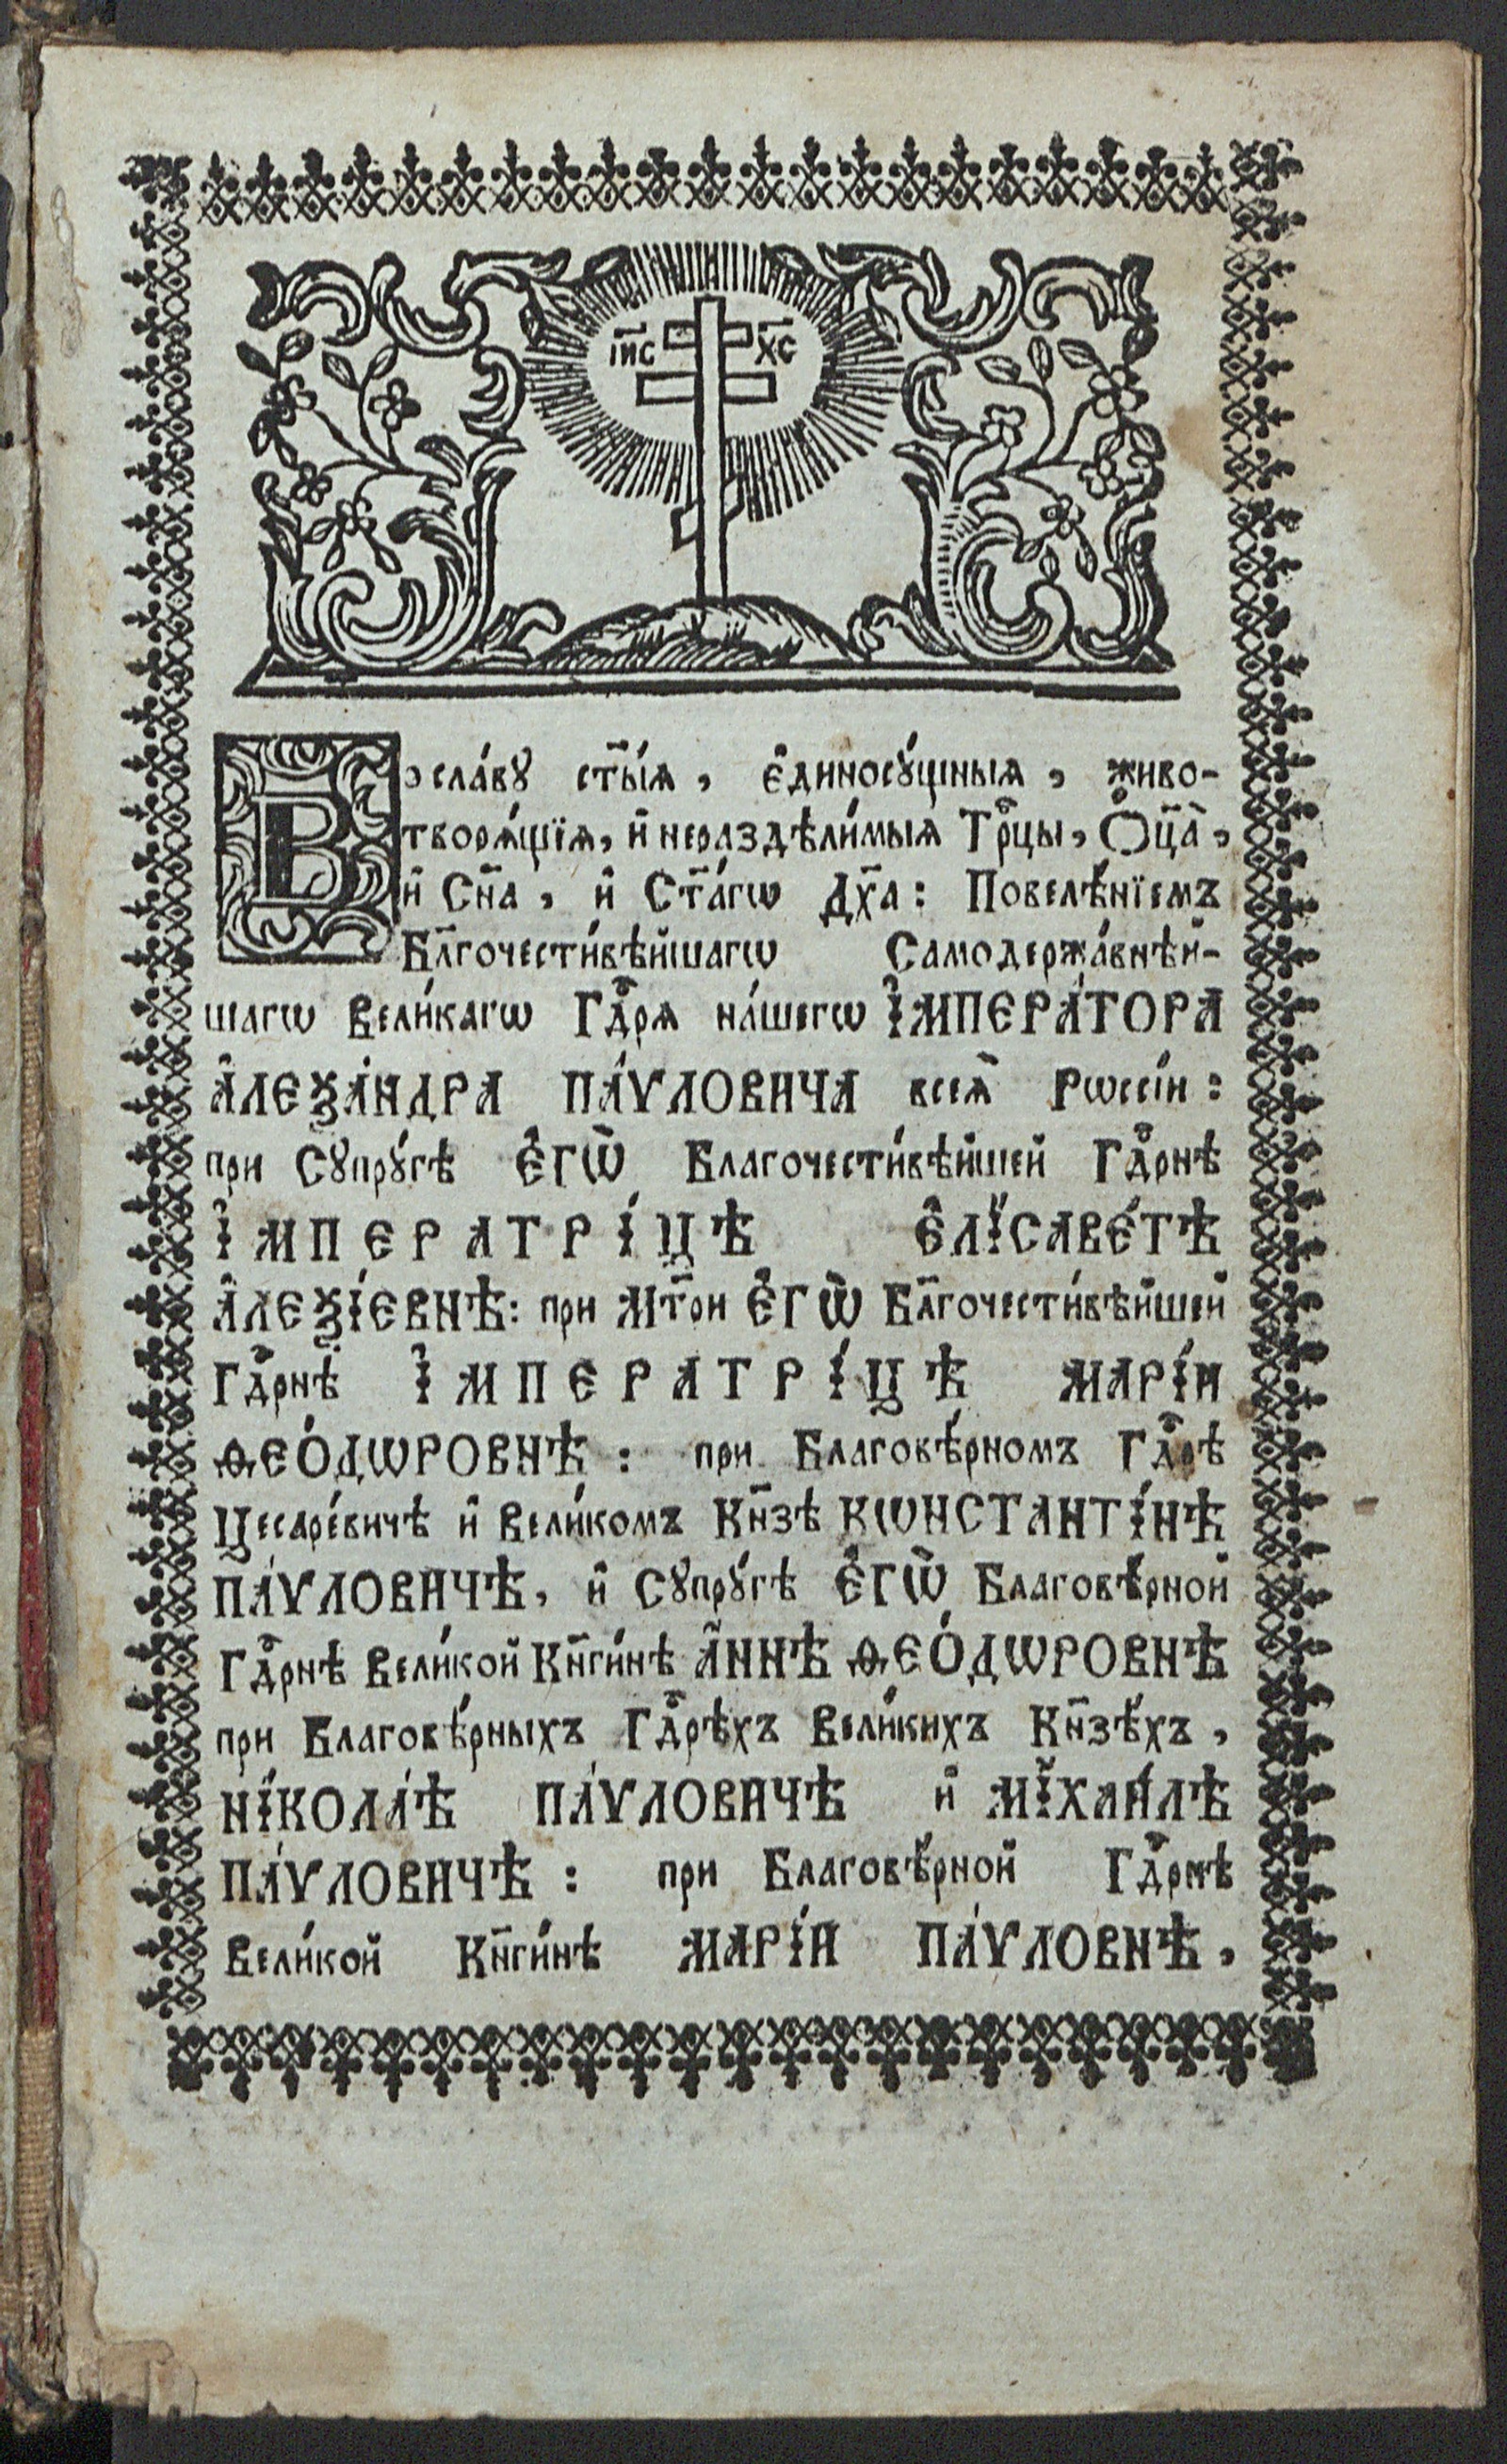 І҆и҃с Х҃с
Во сла́вꙋ ст҃ы́ѧ, є҆диносꙋ́щныѧ, живо-
творѧ́щїѧ, и҆ нераздѣли́мыѧ Трⷪ҇цы, Ѻ҆ц҃а̀,
и҆ Сн҃а, и҆ Ст҃а́гѡ Дх҃а: Повелѣ́нїемъ
Бл҃гочести́вѣйшагѡ Самодержа́внѣй-
шагѡ Вели́кагѡ Гдⷭ҇рѧ на́шегѡ І҆МПЕРА́ТОРА
А҆ЛЕѮА́НДРА ПА́ѴЛОВИЧА всеѧ̀ Рѡссі́и:
при Сꙋпрꙋ́гѣ Є҆ГѠ̀ Благочести́вѣйшей Гдⷭ҇рнѣ
І҆МПЕРАТРІ́ЦѢ Є҆ЛІСАВЕ́ТѢ
А҆ЛЕѮІ́ЕВНѢ: при Мт҃ри Є҆ГѠ̀ Бл҃гочести́вѣйшей
Гдⷭ҇рнѣ І҆МПЕРАТРІ́ЦѢ МАРІ́И
ѲЕО́ДѠРОВНѢ: при Благовѣ́рномъ Гдⷭ҇рѣ
Цесаре́вичѣ и҆ Вели́комъ Кн҃зѣ КѠНСТАНТІ́НѢ
ПА́ѴЛОВИЧѢ, и҆ Сꙋпрꙋ́гѣ Є҆ГѠ̀ Благовѣ́рной
Гдⷭ҇рнѣ Вели́кой Кн҃ги́нѣ А҆́ННѢ ѲЕО́ДѠРОВНѢ
при Благовѣ́рныхъ Гдⷭ҇рѣхъ Вели́кихъ Кн҃зѣ́хъ,
НІКОЛА́Ѣ ПА́ѴЛОВИЧѢ и҆ МІХАИ́ЛѢ
ПА́ѴЛОВИЧѢ: при Благовѣ́рной Гдⷭ҇рнѣ
Вели́кой Кн҃ги́нѣ МАРІ́И ПА́ѴЛОВНѢ,